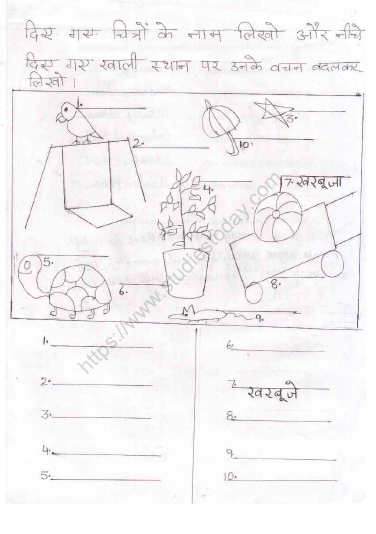 दिए गए चित्रों के नाम लिखो और नीचे
दिए गए खाली स्थान पर उनके वचन बदलकर
लिखो ।
1.
2.
3.
10.
4.
7. खरबूजा
5.
6.
8.
9.
https://www.studiestoday.com
1.
2.
3.
4.
5.
6.
7. खरबूजे
8.
9.
10.